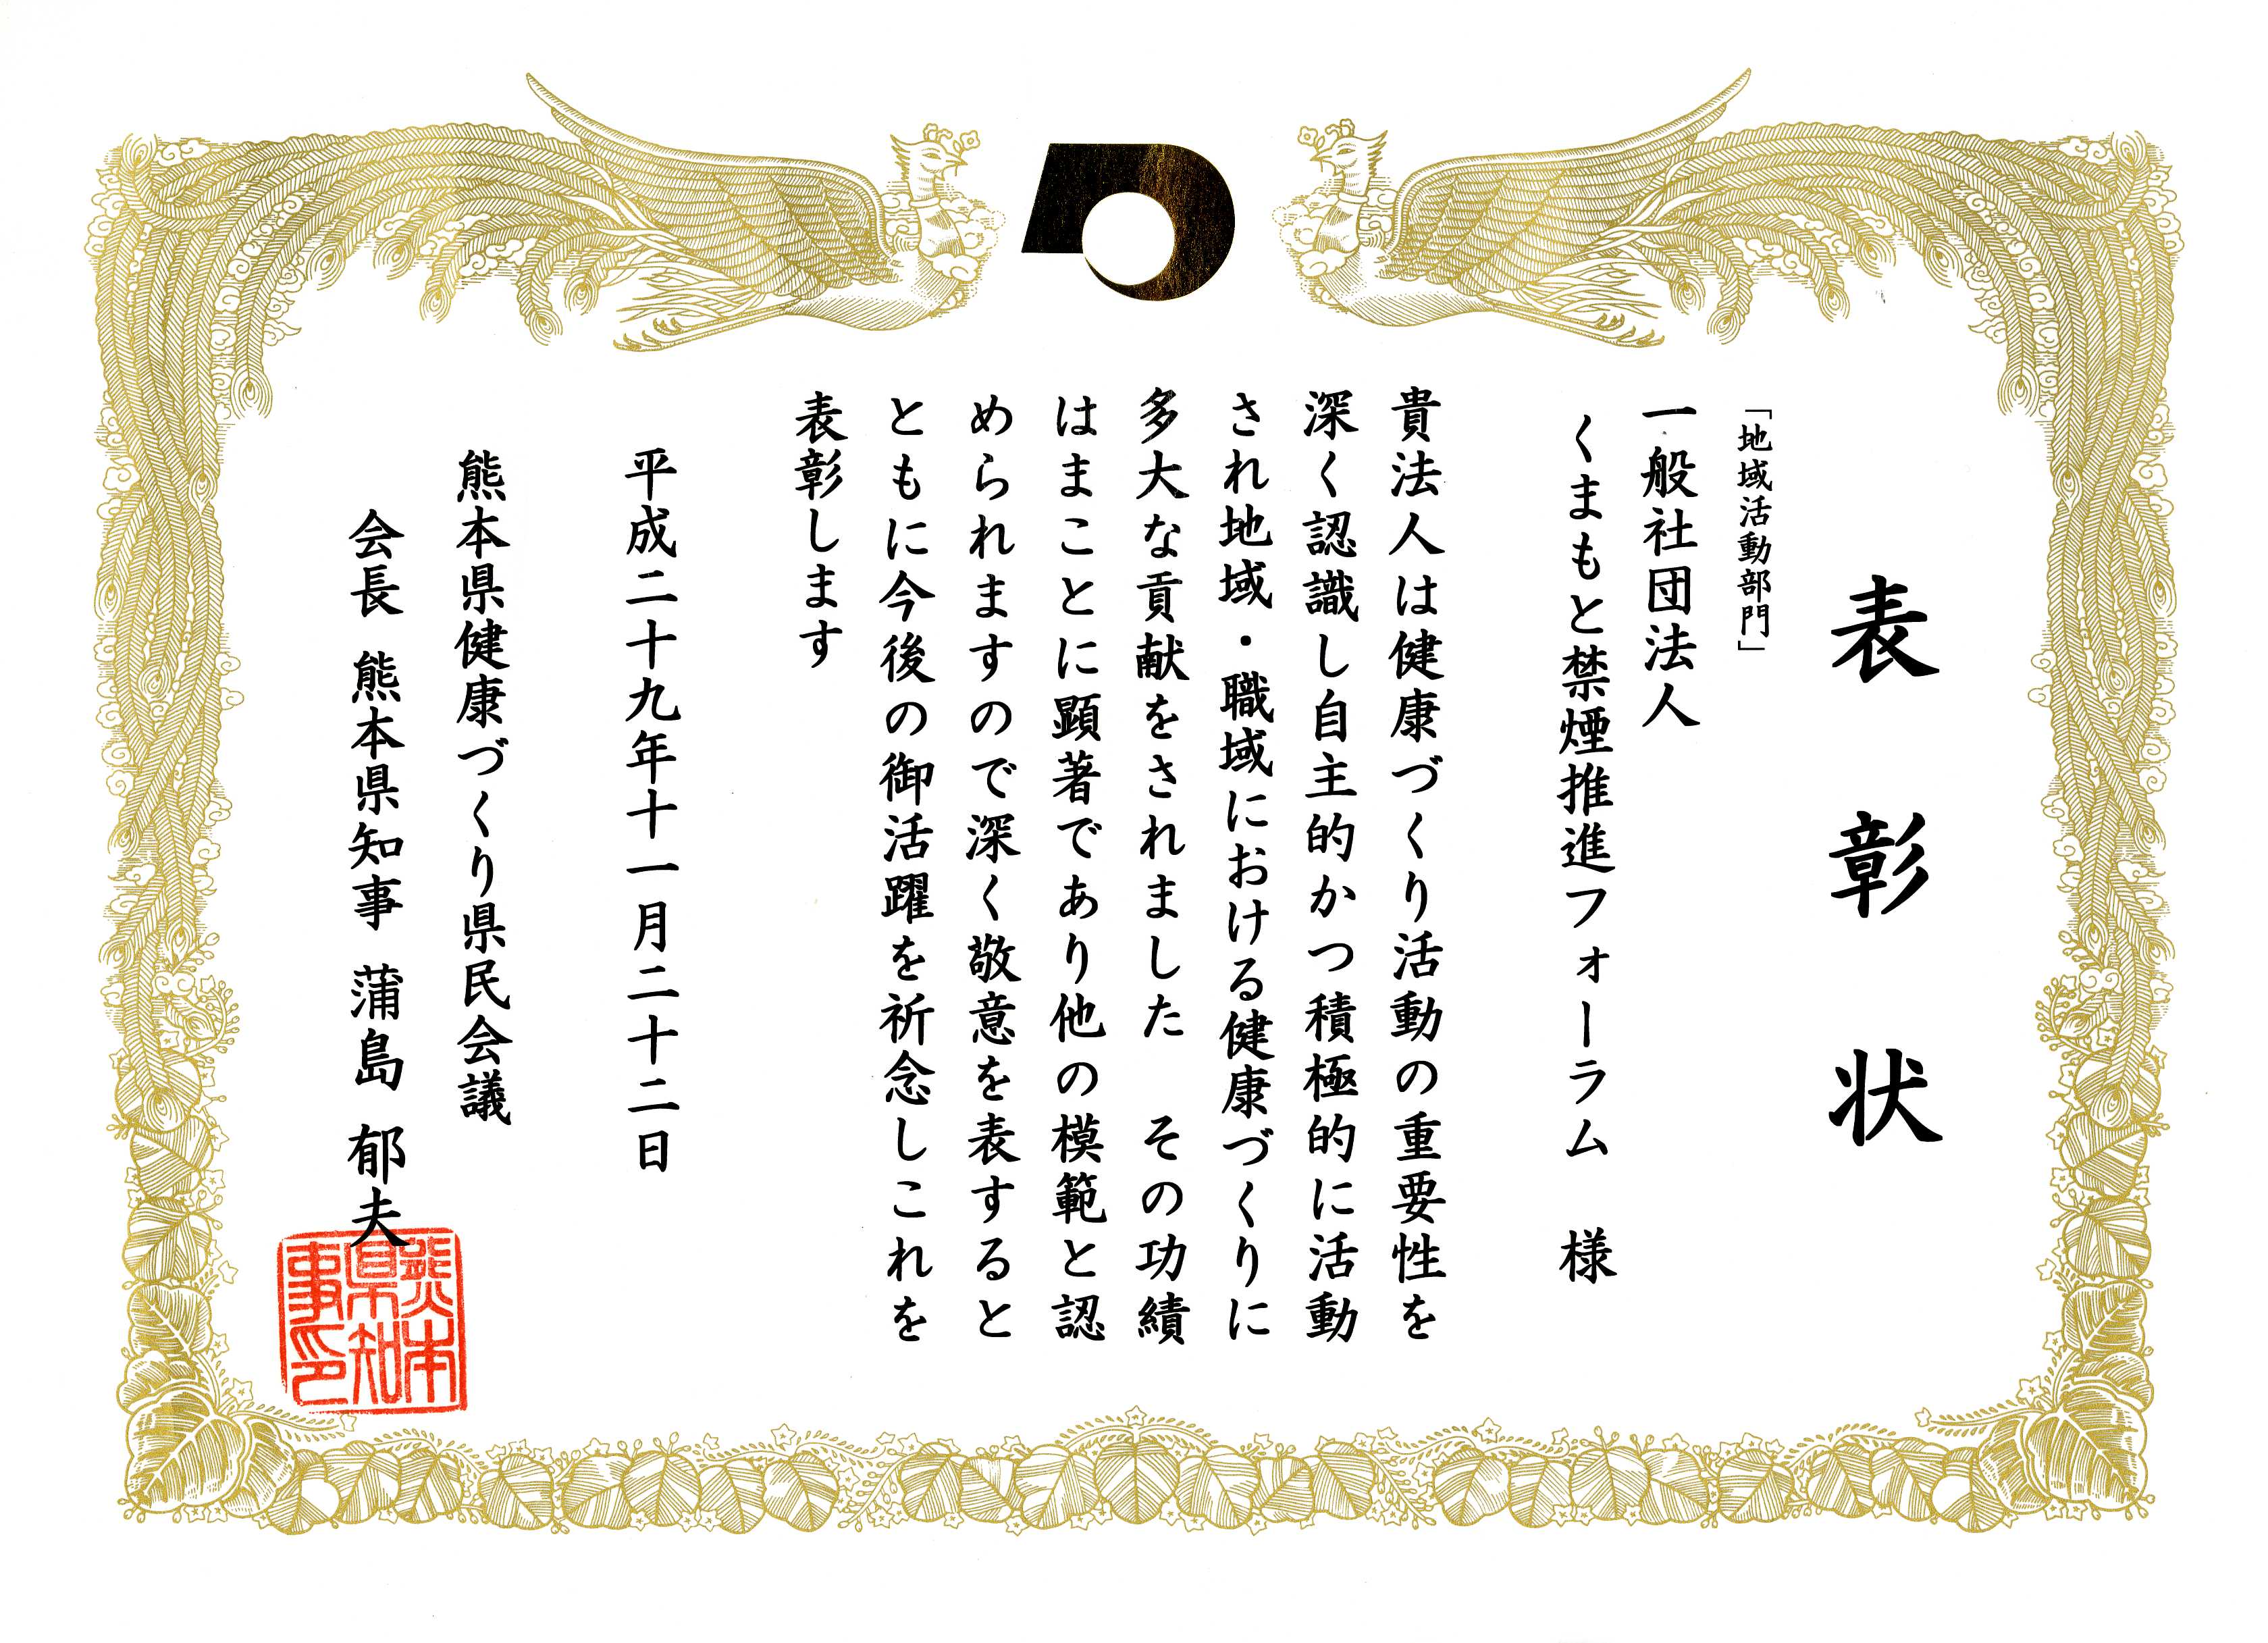 表彰状
「地域活動部門」
一般社団法人
くまもと禁煙推進フォーラム 様
貴法人は健康づくり活動の重要性を
深く認識し自主的かつ積極的に活動
され地域・職域における健康づくりに
多大な貢献をされました その功績
はまことに顕著であり他の模範と認
められますので深く敬意を表すると
ともに今後の御活躍を祈念しこれを
表彰します
平成二十九年十一月二十二日
熊本県健康づくり県民会議
会長 熊本県知事 蒲島 郁夫
熊本
県知
事印